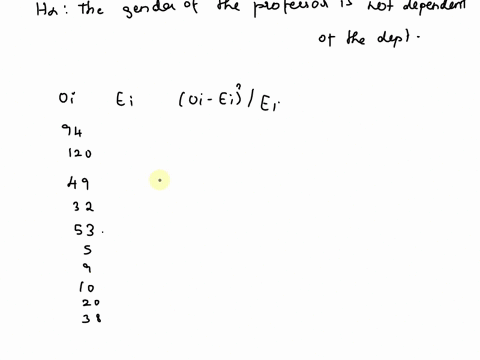 Ha: The gender of the professor is not dependent
of the dept.
Oi Ei (Oi - Ei)²/Ei
94
120
49
32
53.
5
9
10
20
38